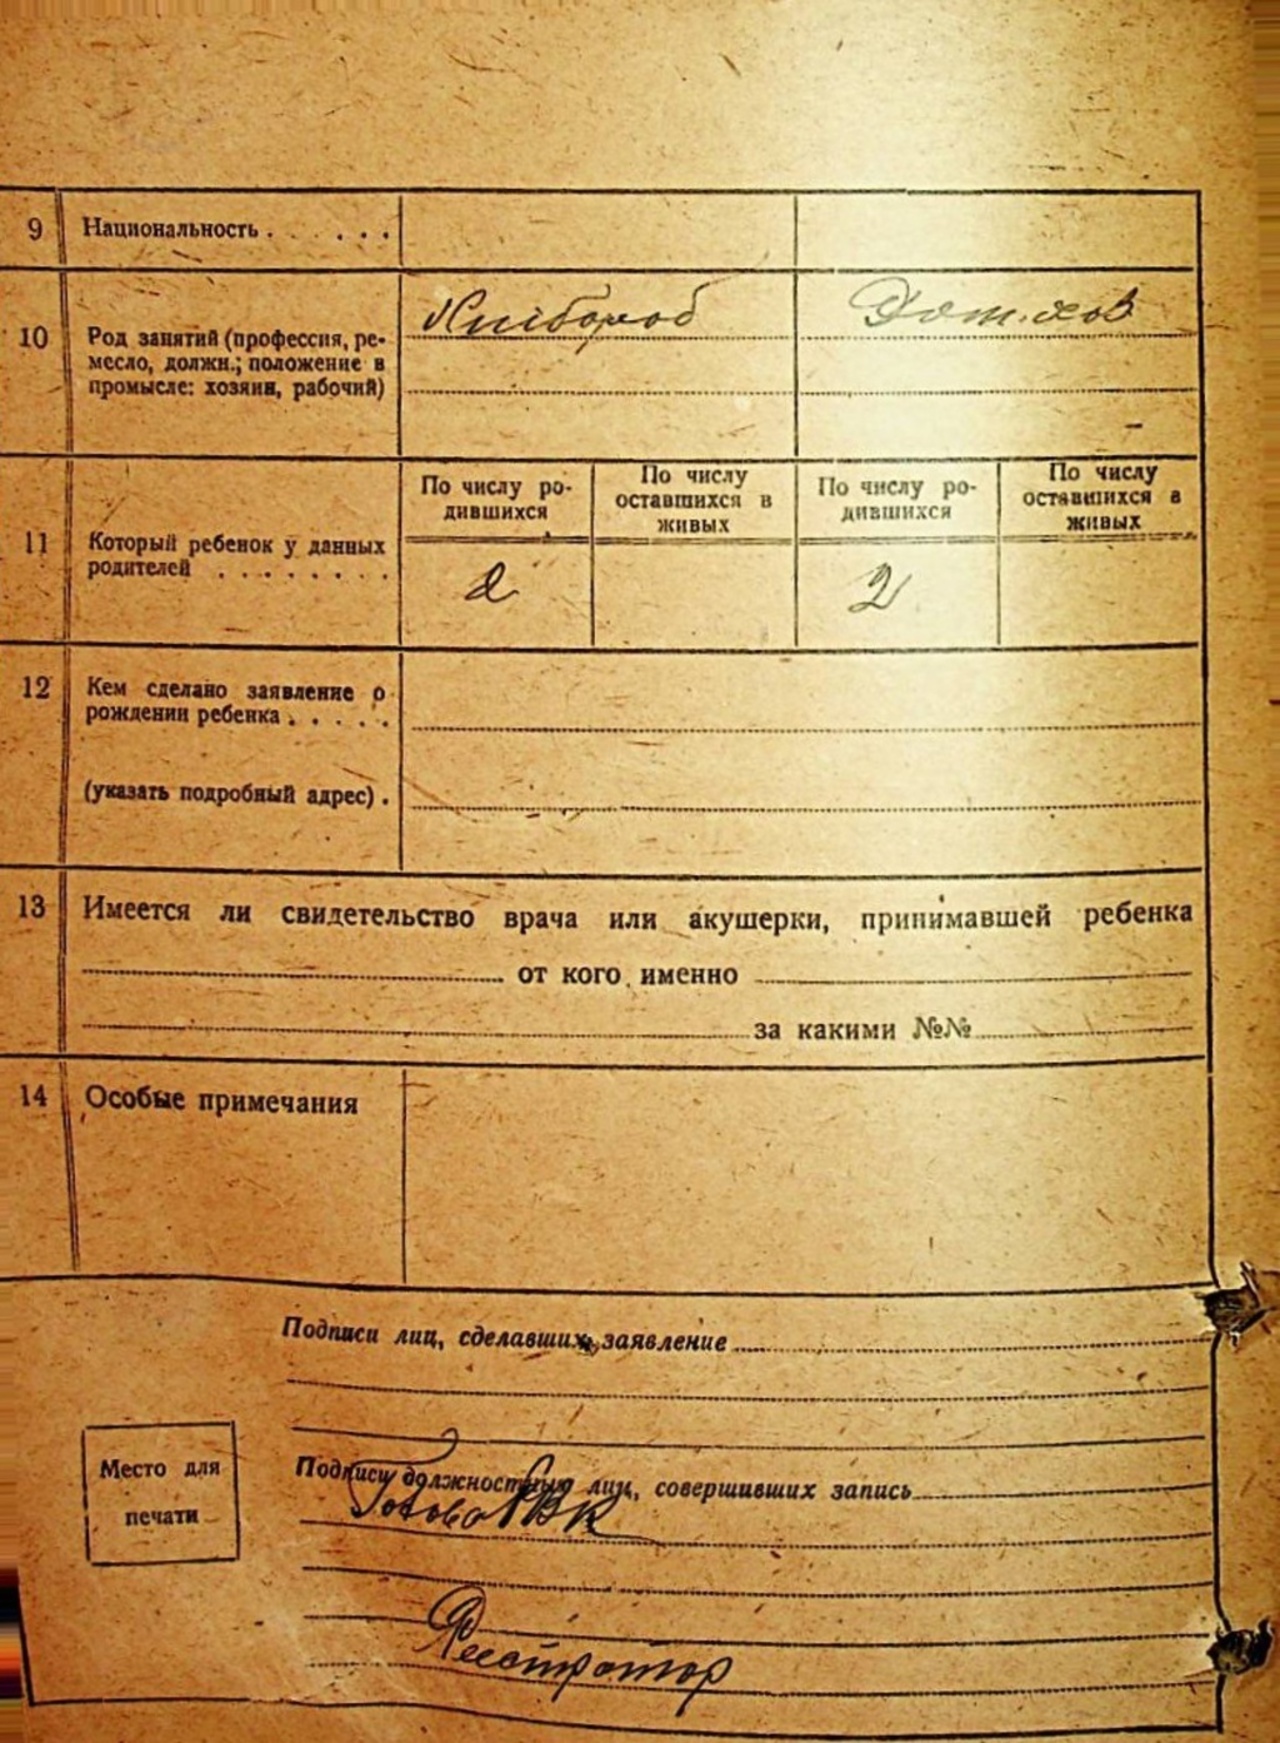 9 Национальность . . . . .
10 Род занятий (профессия, ре-
месло, должн.; положение в
промысле: хозяин, рабочий)
Хлібороб Дом. хоз
11 Который ребенок у данных
родителей . . . . . . . .
По числу ро-
дившихся
По числу
оставшихся в
живых
По числу ро-
дившихся
По числу
оставшихся в
живых
2 2
12 Кем сделано заявление о
рождении ребенка . . . . .
(указать подробный адрес) .
13 Имеется ли свидетельство врача или акушерки, принимавшей ребенка
от кого именно
за какими №№
14 Особые примечания
Подписи лиц, сделавших заявление
Место для
печати
Подписи должностных лиц, совершивших запись
Голова РВК
Реєстратор